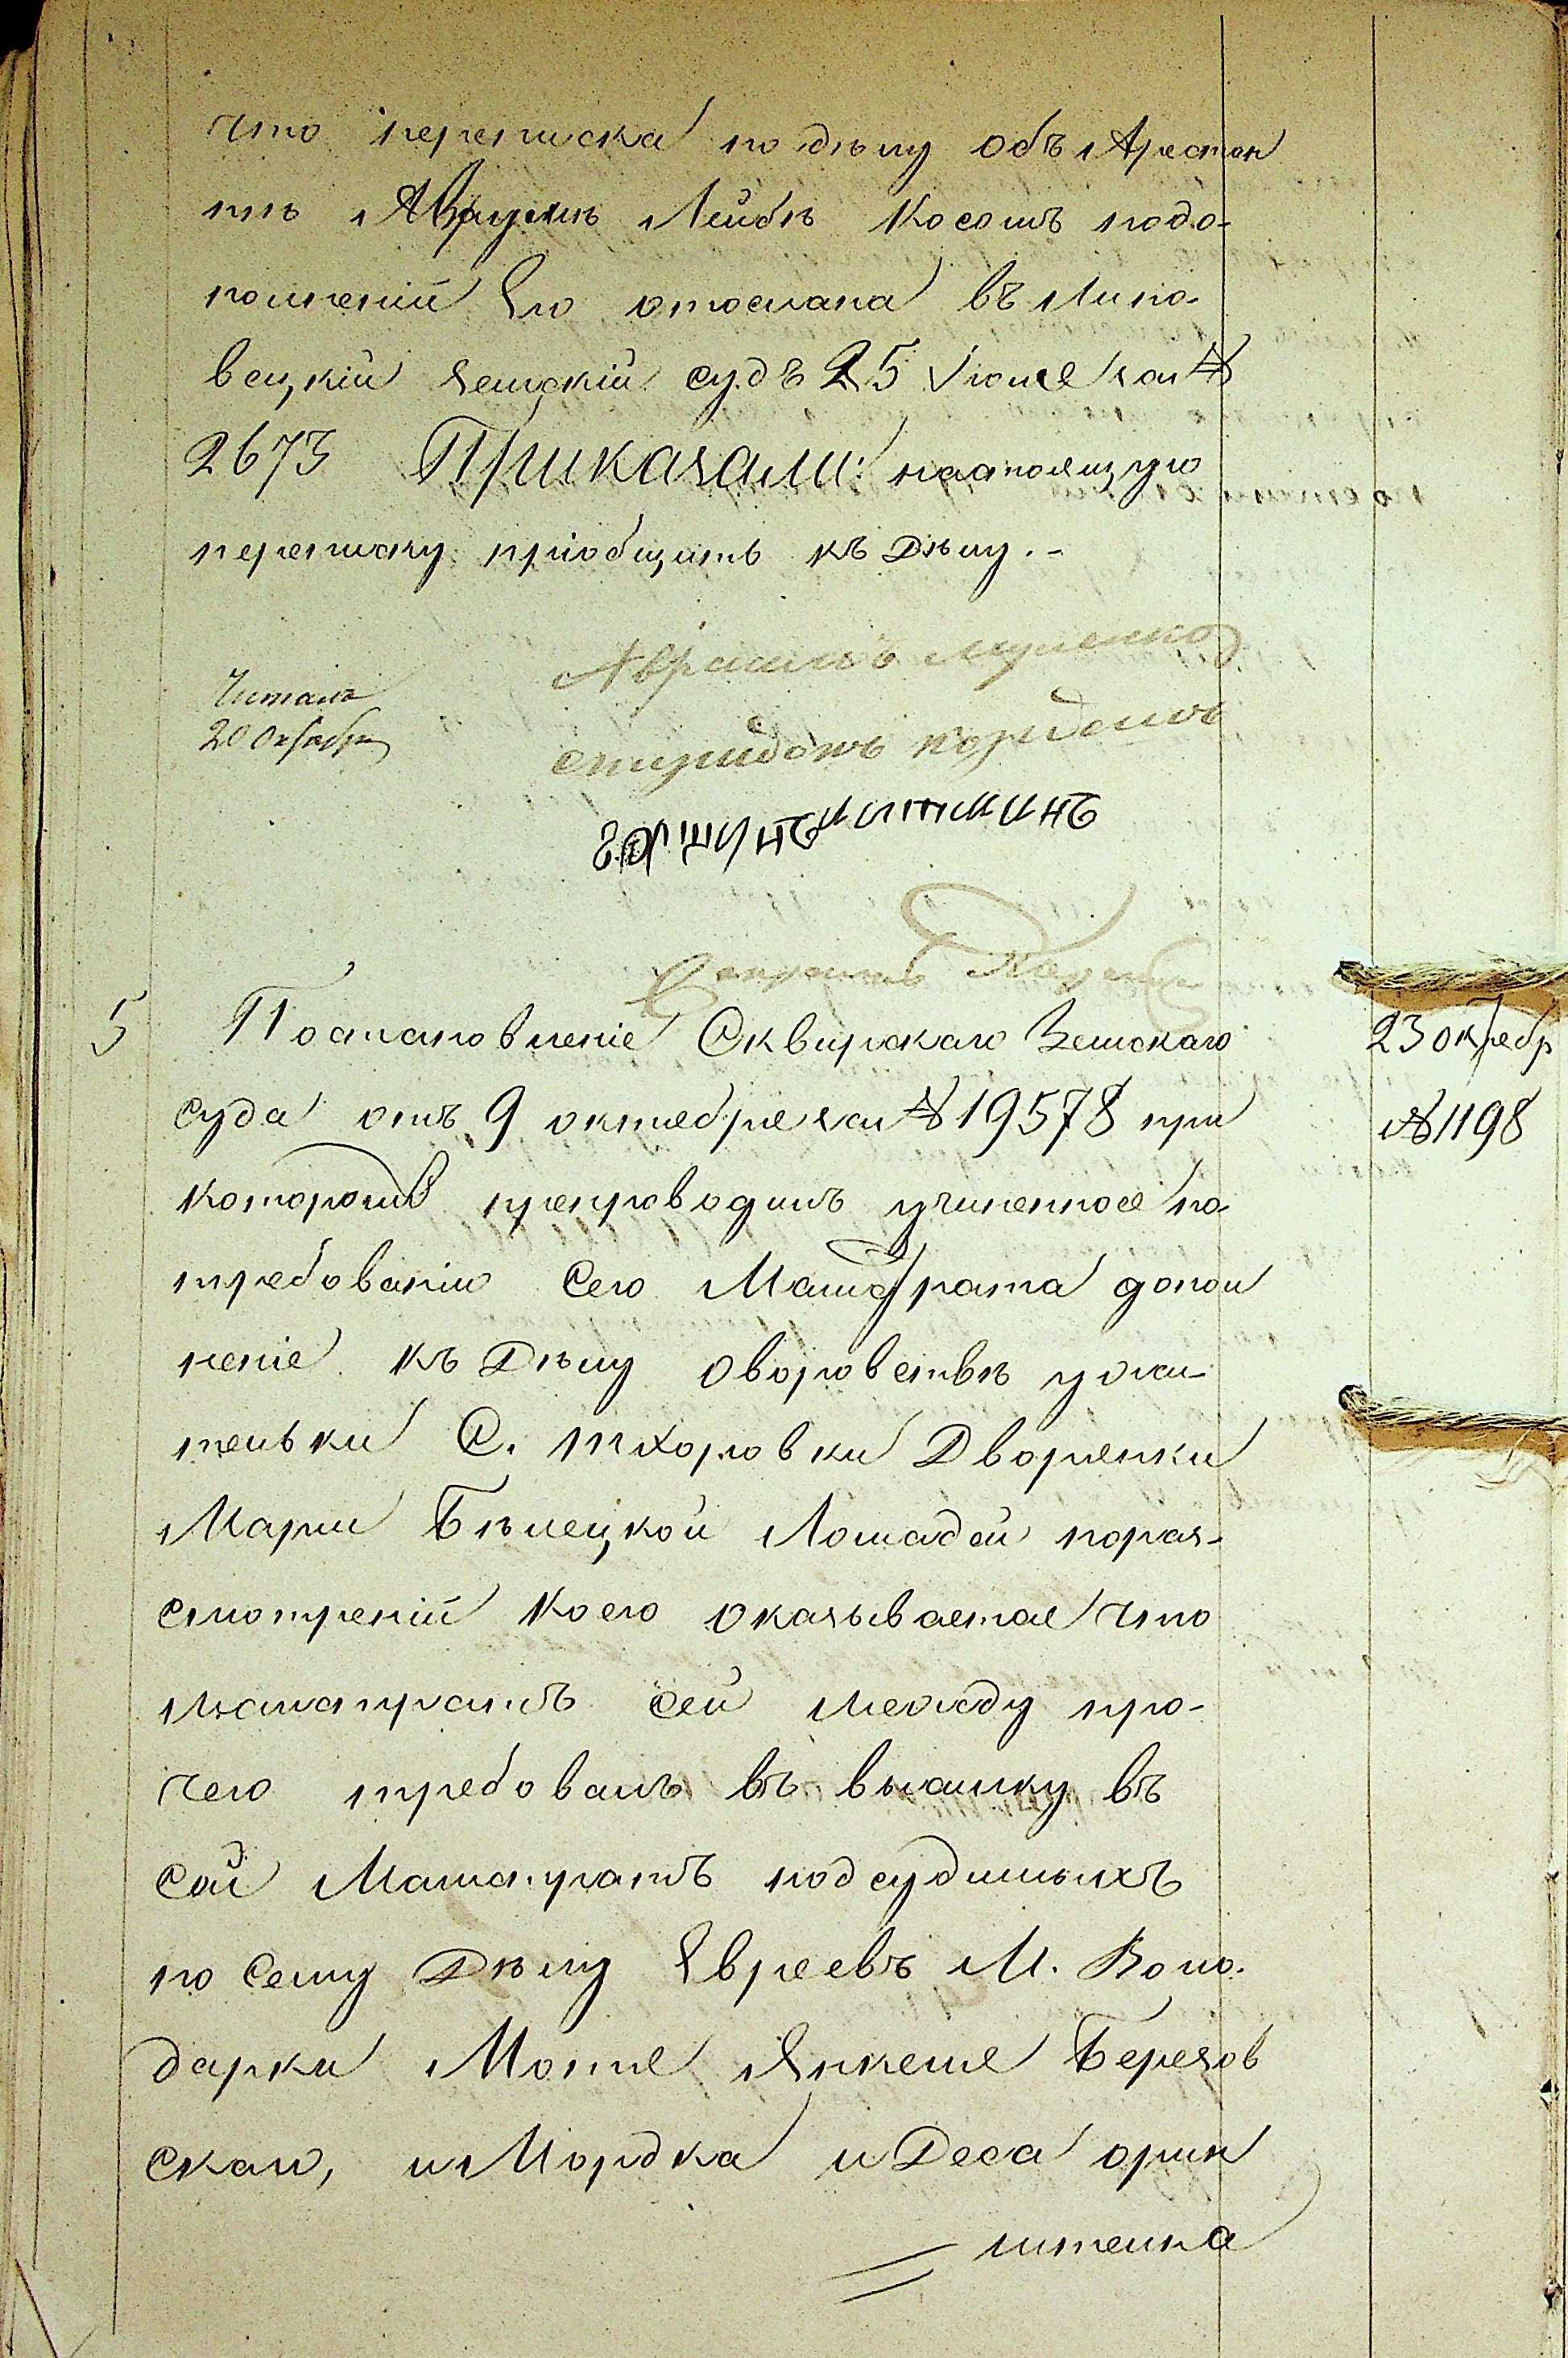 что переписка по дѣлу объ Арестан
тѣ Аврумѣ Лейбѣ Косомъ по до-
полненій Его отослана въ Липо-
вецкій Земскій судъ 25 Іюля за №
2673 Приказали: настоящую
переписку пріобщить къ Дѣлу.-
Читалъ
20 Октября
Спиридонъ
5 Постановленіе Сквирскаго Земскаго
23 октебр
суда отъ 9 октебря за № 19578 при
№ 1198
которомъ препроводилъ учиненное по
требованію Сего Магистрата допол
неніе къ Дѣлу о воровствѣ у жи-
тельки С. Тхоровки Дворянки
Маріи Бѣлецкой Лошадей пораз-
смотреній коего оказывается что
магистратъ сей между про-
чего требовалъ въ высилку въ
сей Магистратъ подсудимыхъ
по Сему Дѣлу Евреевъ М. Воло-
дарки Мошя Янкеля Березов
скаго, и Мордка и Деса орин
штейна